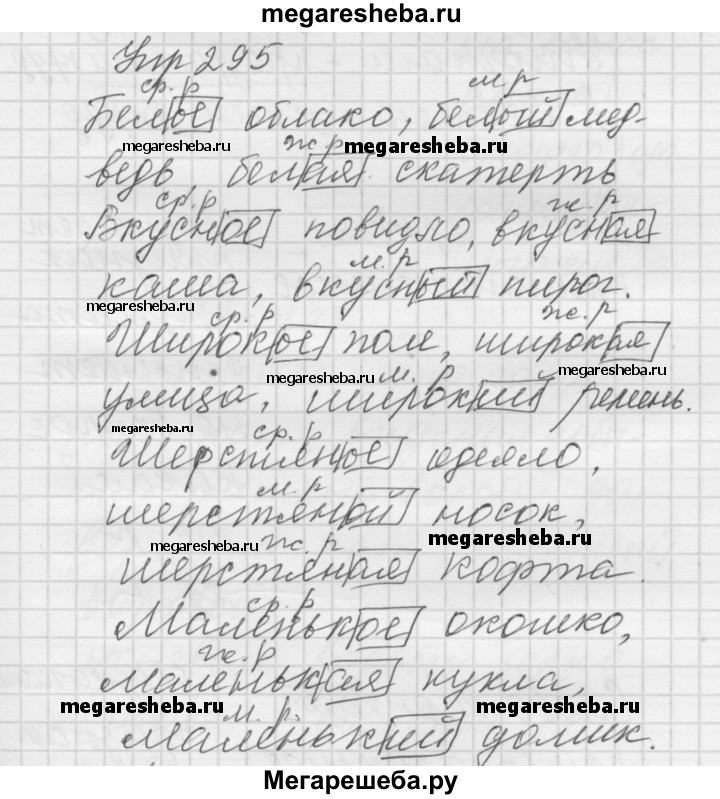 megaresheba.ru
Упр 295
ср. р м. р
Белое облако, белый мед-
megaresheba.ru ж. р megaresheba.ru
ведь белая скатерть
ср. р ж. р
Вкусное повидло, вкусная
м. р
каша, вкусный пирог.
megaresheba.ru ср. р ж. р
Широкое поле, широкая
megaresheba.ru м. р megaresheba.ru
улица, широкий ремень.
megaresheba.ru ср. р
Шерстяное одеяло,
м. р
шерстяной носок,
megaresheba.ru ж. р megaresheba.ru
шерстяная кофта.
ср. р
Маленькое окошко,
ж. р
маленькая кукла,
megaresheba.ru м. р. megaresheba.ru
маленький домик.
Мегарешеба.ру